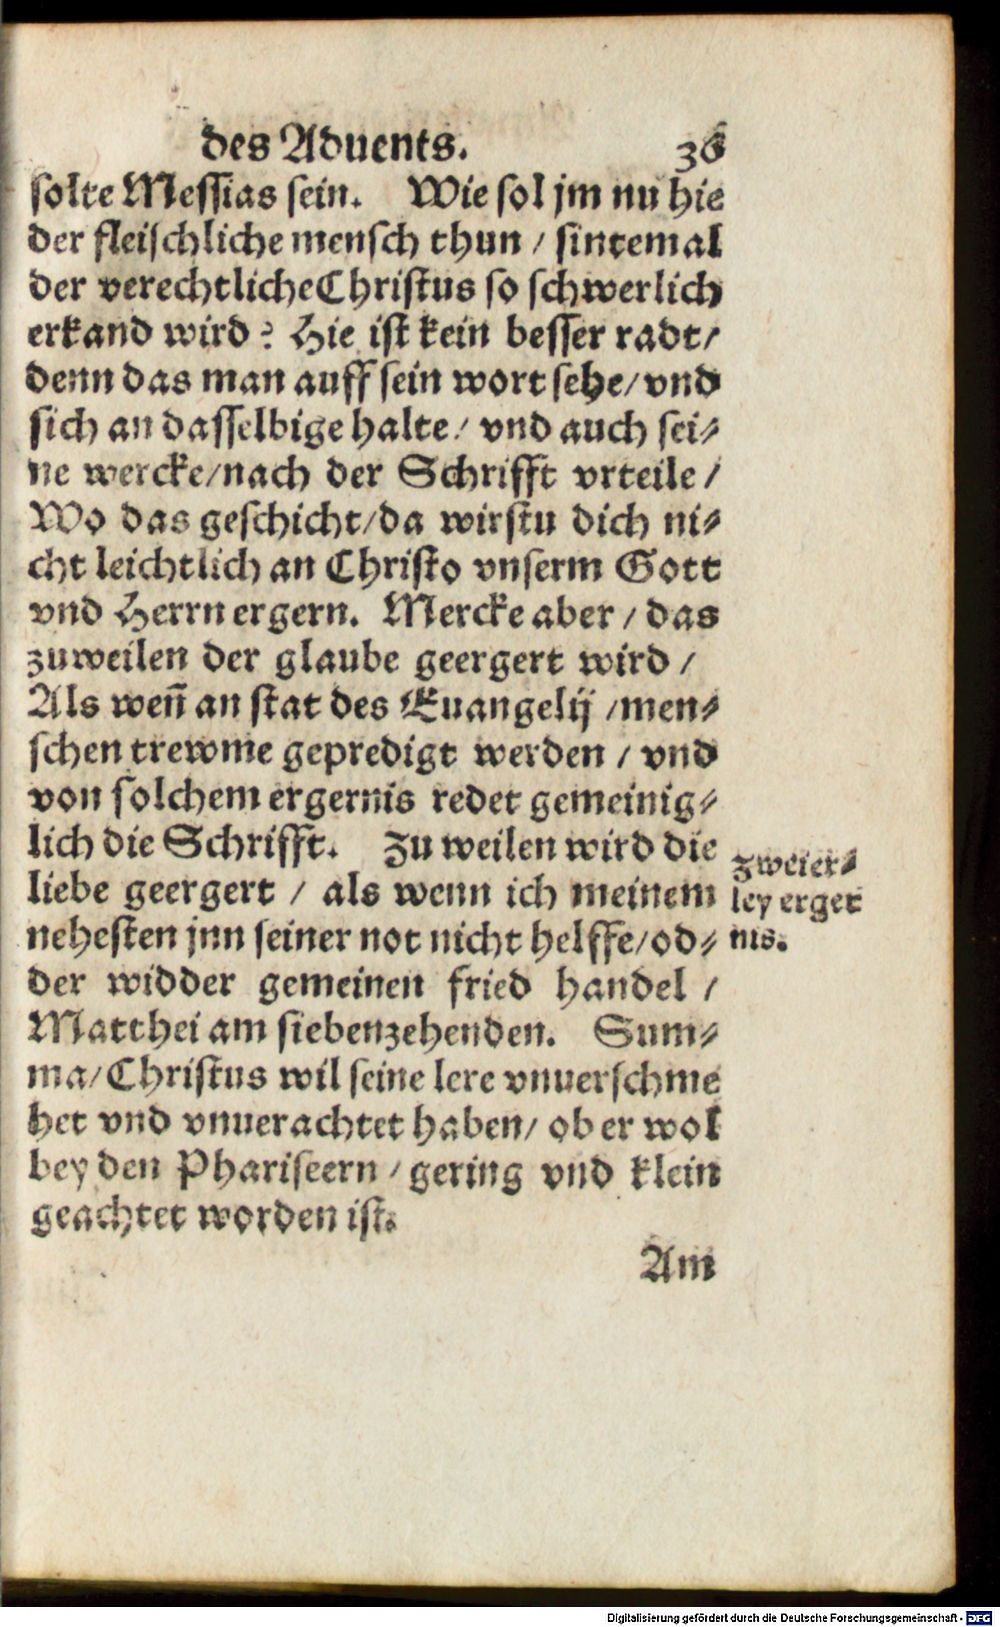 des Aduents. 36
solte Messias sein. Wie sol jm nu hie
der fleischliche mensch thun / sintemal
der verechtliche Christus so schwerlich
erkand wird? Hie ist kein besser radt/
denn das man auff sein wort sehe/ vnd
sich an dasselbige halte/ vnd auch sei⸗
ne wercke/nach der Schrifft vrteile /
Wo das geschicht/da wirstu dich ni⸗
cht leichtlich an Christo vnserm Gott
vnd Herrn ergern. Mercke aber / das
zuweilen der glaube geergert wird /
Als weñ an stat des Euangelij /men⸗
schen trewme gepredigt werden / vnd
von solchem ergernis redet gemeinig⸗
lich die Schrifft. Zu weilen wird die
liebe geergert / als wenn ich meinem
nehesten jnn seiner not nicht helffe/od⸗
der widder gemeinen fried handel /
Matthei am siebenzehenden. Sum⸗
ma/Christus wil seine lere vnuerschme
het vnd vnuerachtet haben/ ob er wol
bey den Phariseern / gering vnd klein
geachtet worden ist.
zweier⸗
ley erger
nis.
Am
Digitalisierung gefördert durch die Deutsche Forschungsgemeinschaft - DFG